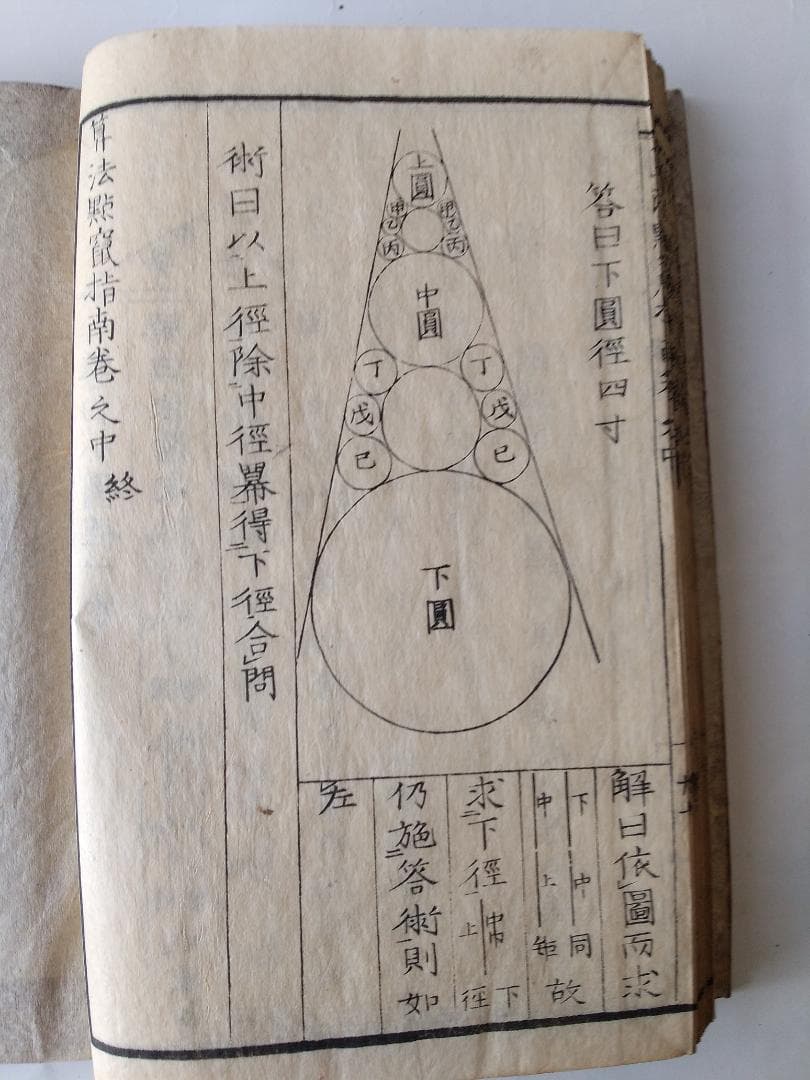 答曰下圓徑四寸
上圓
甲 甲
乙 乙
丙 丙
中圓
丁 丁
戊 戊
己 己
下圓
解曰依圖而求
下 中 同
中 上 矩 故
求二下徑一
中巾 下
上 徑
仍施二答術一則如
左
術曰以上徑除中徑冪得二下徑一合問
算法點竄指南卷之中 終